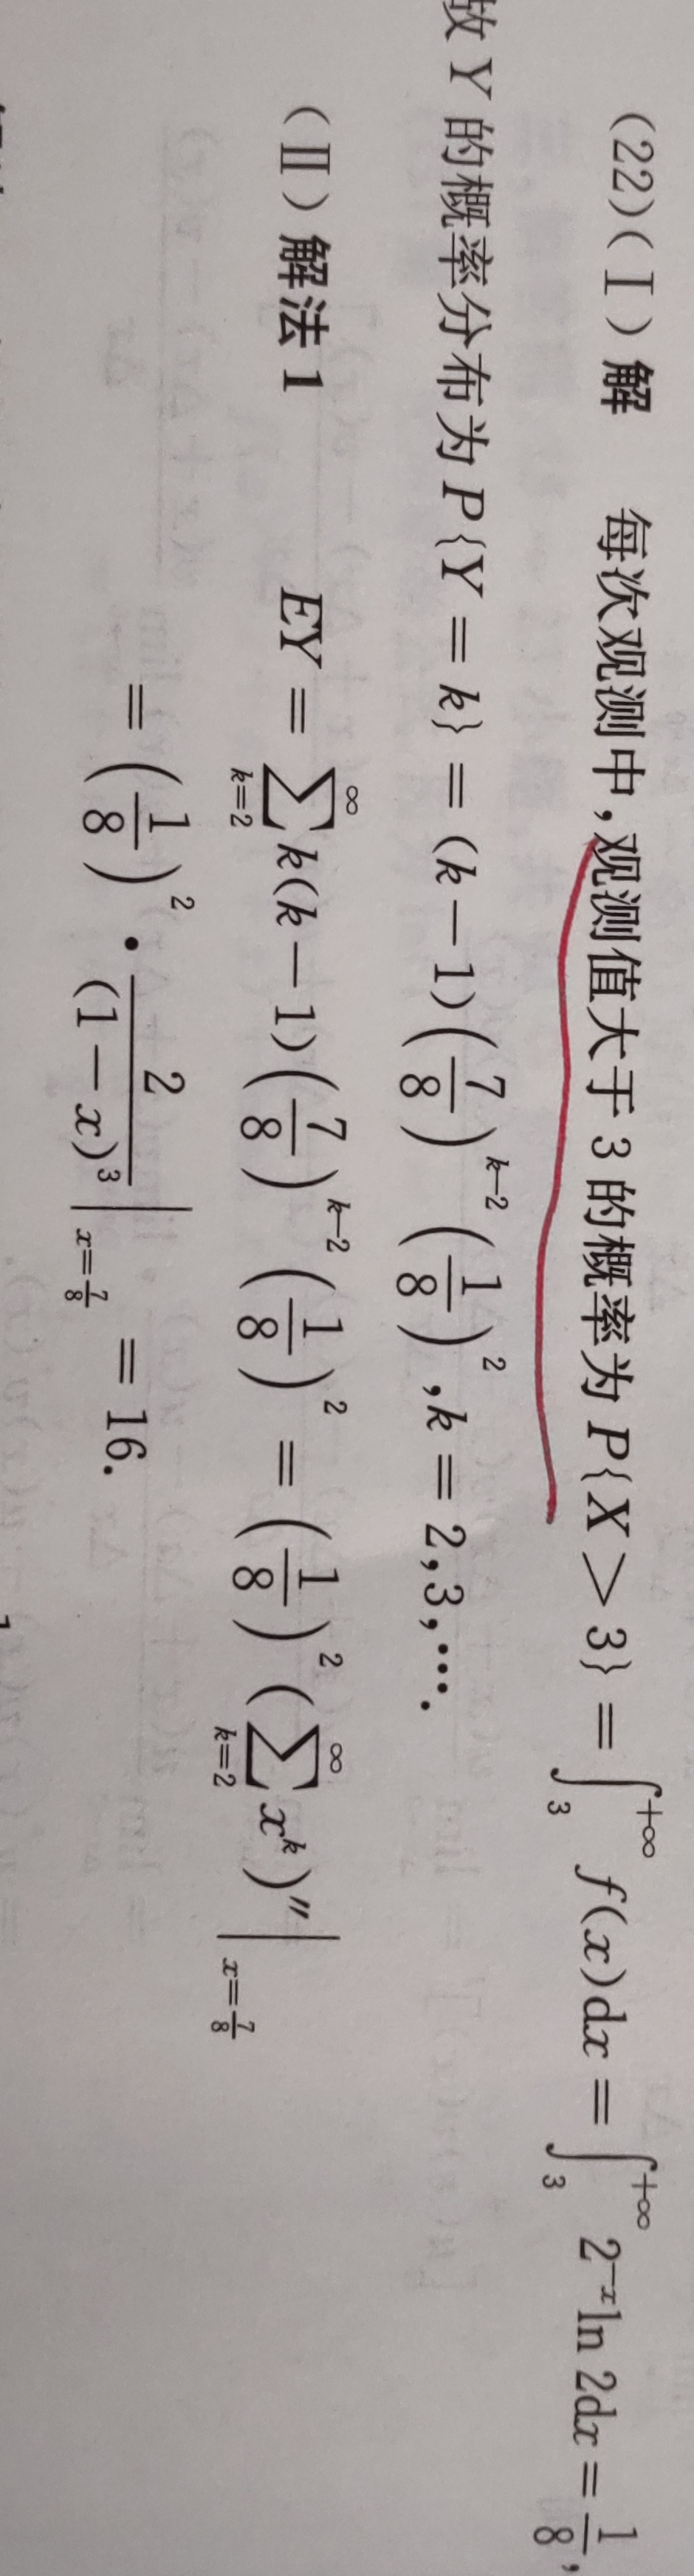 (22)(Ⅰ)解 每次观测中,观测值大于 3 的概率为 P{X > 3} = ∫₃^{+∞} f(x)dx = ∫₃^{+∞} 2^{-x}ln 2dx = 1/8,
故 Y 的概率分布为 P{Y = k} = (k − 1)(7/8)^{k−2} (1/8)^2, k = 2,3,⋯.
(Ⅱ)解法 1 EY = ∑_{k=2}^{∞} k(k − 1)(7/8)^{k−2} (1/8)^2 = (1/8)^2 (∑_{k=2}^{∞} x^k)″|_{x=7/8}
= (1/8)^2 · 2/(1 − x)^3|_{x=7/8} = 16.